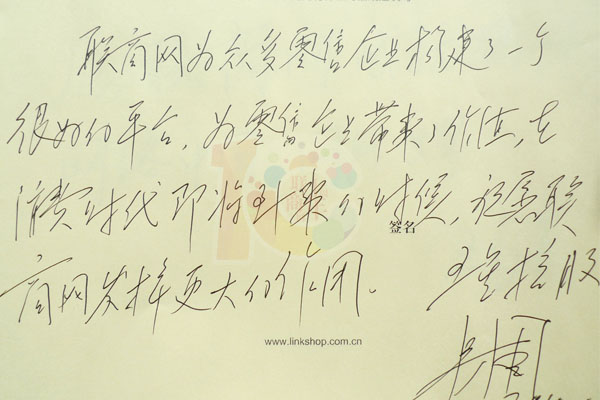 联商网为众多零售企业搭建了一个
很好的平台，为零售企业带来了价值，在
消费时代即将到来的时候，祝愿联
商网发挥更大的作用。
签名
www.linkshop.com.cn